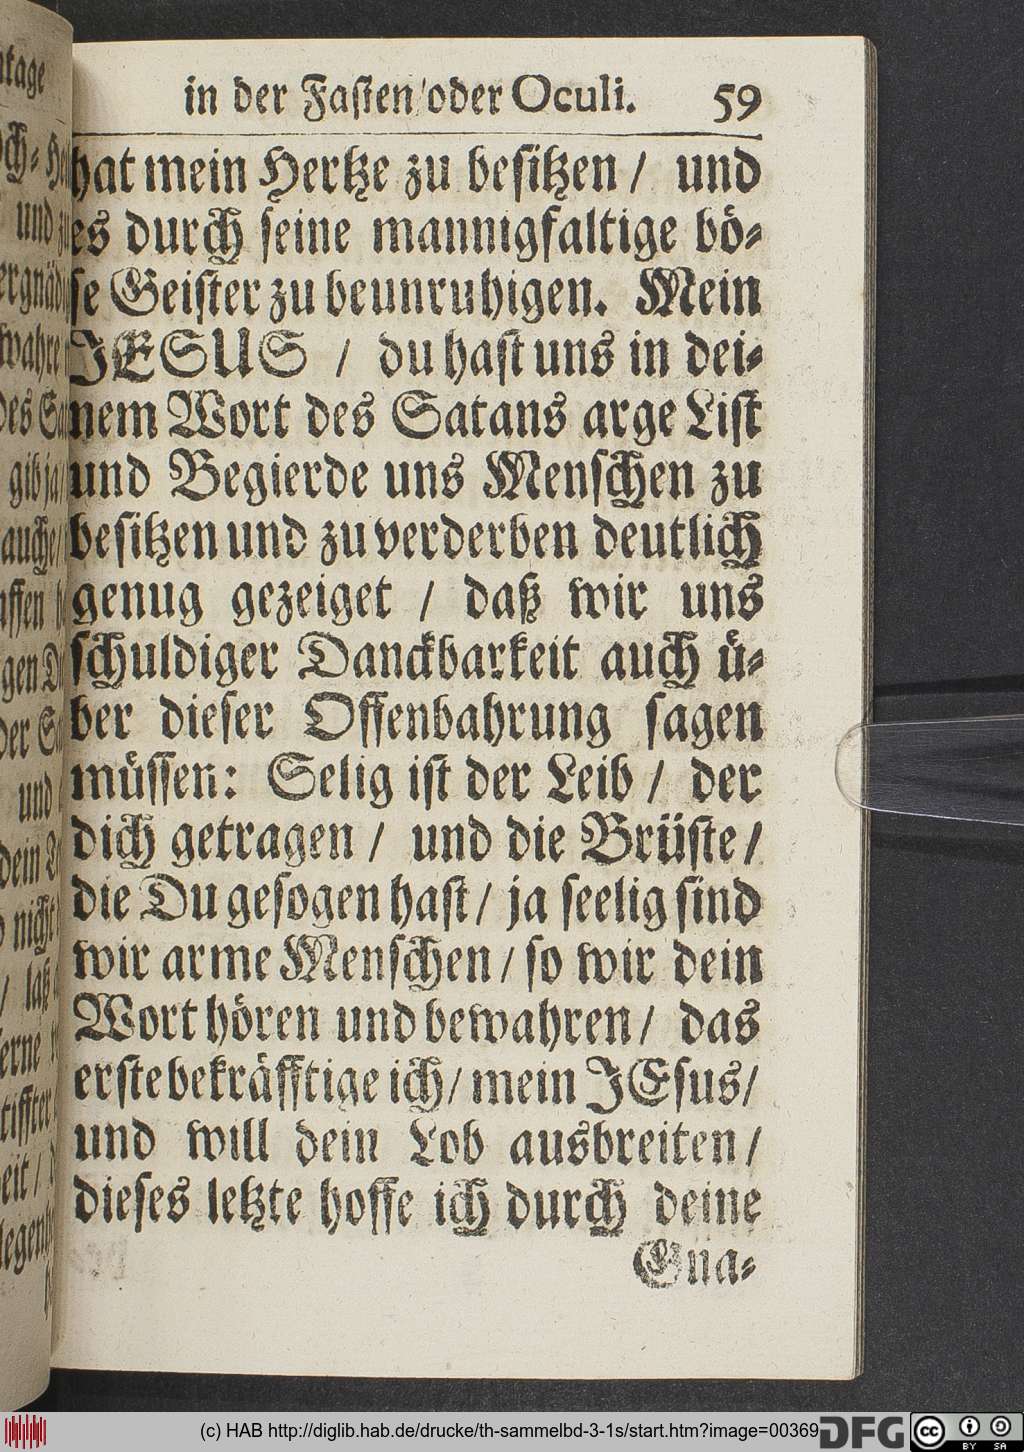 in der Fasten / oder Oculi. 59
hat mein Hertze zu besitzen / und
es durch seine mannigfaltige bö-
se Geister zu beunruhigen. Mein
JESUS / du hast uns in dei-
nem Wort des Satans arge List
und Begierde uns Menschen zu
besitzen und zu verderben deutlich
genug gezeiget / daß wir uns
schuldiger Danckbarkeit auch ü-
ber dieser Offenbahrung sagen
müssen: Selig ist der Leib / der
dich getragen / und die Brüste /
die Du gesogen hast / ja seelig sind
wir arme Menschen / so wir dein
Wort hören und bewahren / das
erste bekräfftige ich / mein JEsus /
und will dein Lob ausbreiten /
dieses letzte hoffe ich durch deine
Gna-
(c) HAB http://diglib.hab.de/drucke/th-sammelbd-3-1s/start.htm?image=00369
DFG
cc
BY SA